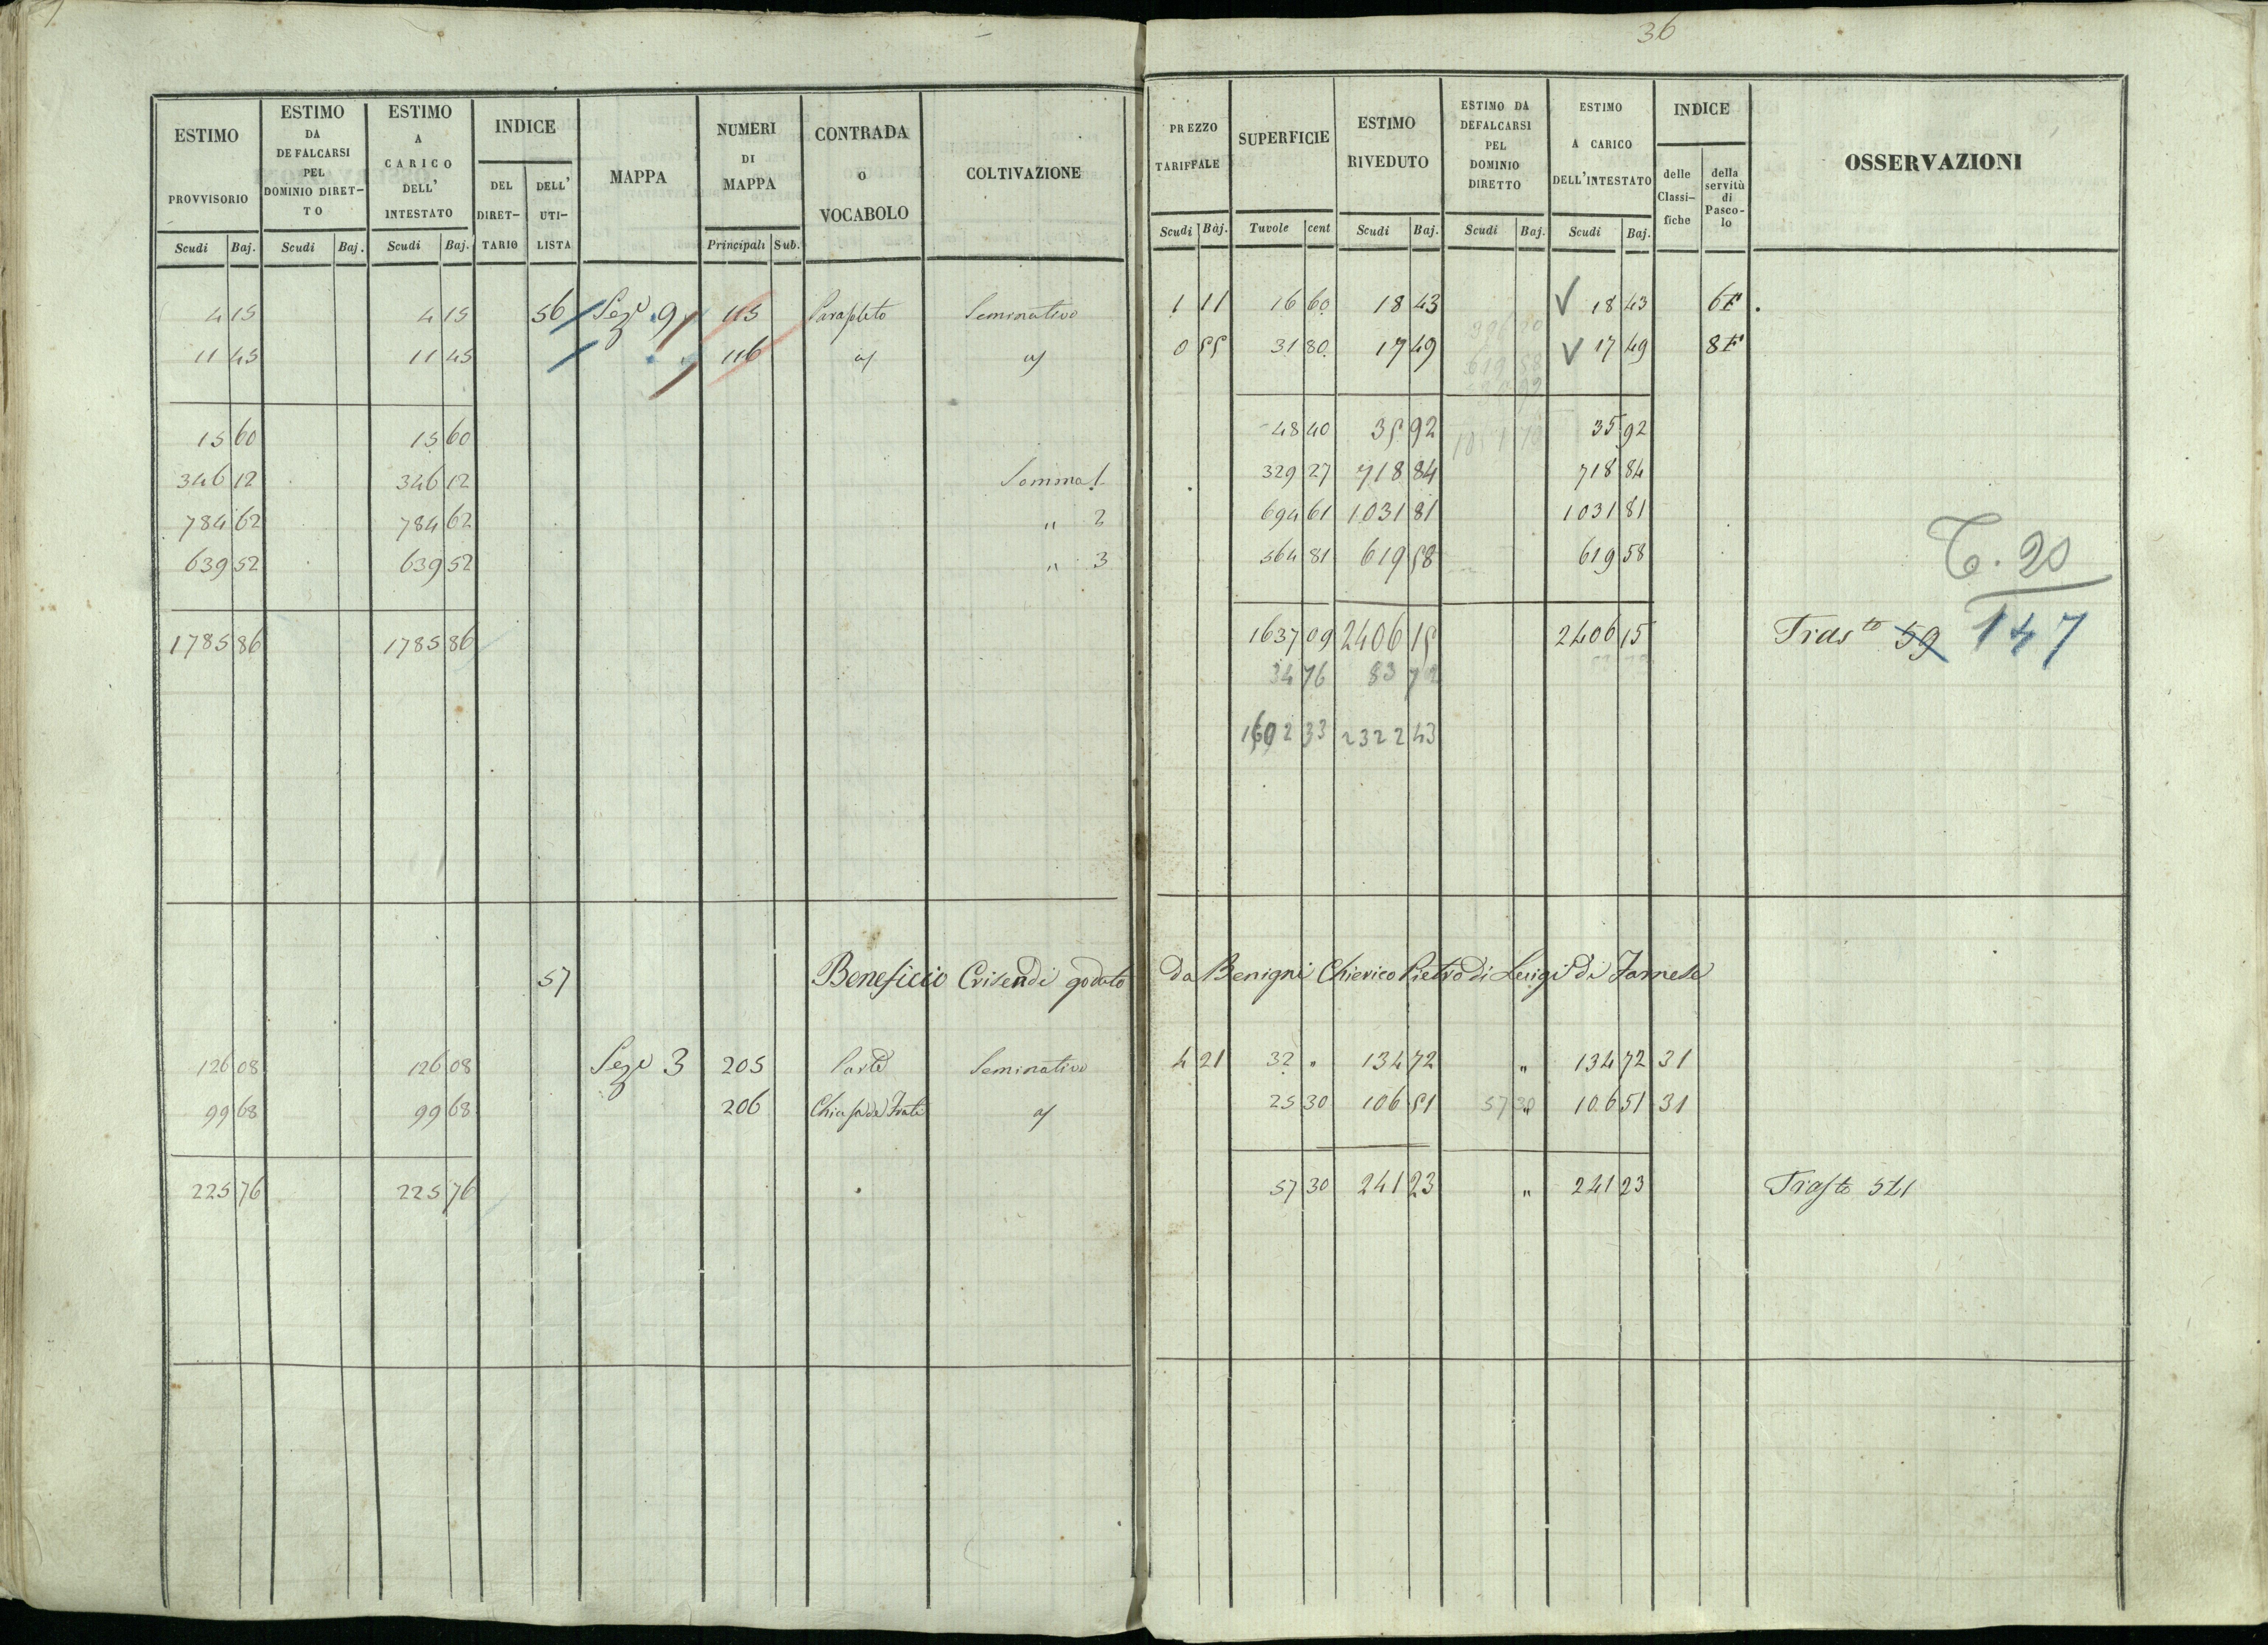 36
ESTIMO PROVVISORIO
ESTIMO DA DEFALCARSI PEL DOMINIO DIRET-TO
ESTIMO A CARICO DELL' INTESTATO
INDICE
DEL DIRET-TARIO
DELL' UTI-LISTA
MAPPA
NUMERI DI MAPPA
CONTRADA O VOCABOLO
COLTIVAZIONE
PREZZO TARIFFALE
SUPERFICIE
ESTIMO RIVEDUTO
ESTIMO DA DEFALCARSI PEL DOMINIO DIRETTO
ESTIMO A CARICO DELL'INTESTATO
INDICE
delle Classi-fiche
della servitù di Pasco-lo
OSSERVAZIONI
Scudi Baj. Scudi Baj. Scudi Baj. Principali Sub. Scudi Baj. Tavole cent Scudi Baj. Scudi Baj. Scudi Baj.
4 15 4 15 56 Sez.e 9 115 Seminativo 1 11 16 60 18 43 18 43 6F
11 45 11 45 116 0 55 31 80 17 49 17 49 8F
15 60 15 60 48 40 35 92 35 92
346 12 346 12 Somma 1 329 27 718 84 718 84
784 62 784 62 " 2 694 61 1031 81 1031 81
639 52 639 52 " 3 564 81 619 58 619 58
T. 20
1785 86 1785 86 1637 09 2406 15 2406 15 Tras.to 59 147
34 76 83 72
1602 33 2322 43
57 Beneficio Crisendi goduto da Benigni Chierico Pietro di Luigi di Farnese
126 08 126 08 Sez.e 3 205 Seminativo 4 21 32 " 134 72 " 134 72 31
99 68 99 68 206 25 30 106 51 57 30 " 106 51 31
225 76 225 76 57 30 241 23 " 241 23 Trasto 541